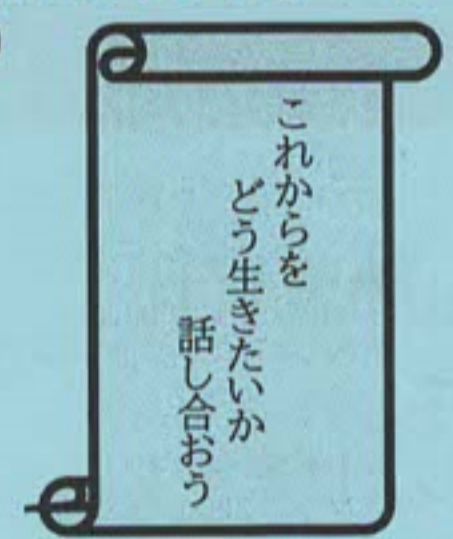 これからを
どう生きたいか
話し合おう